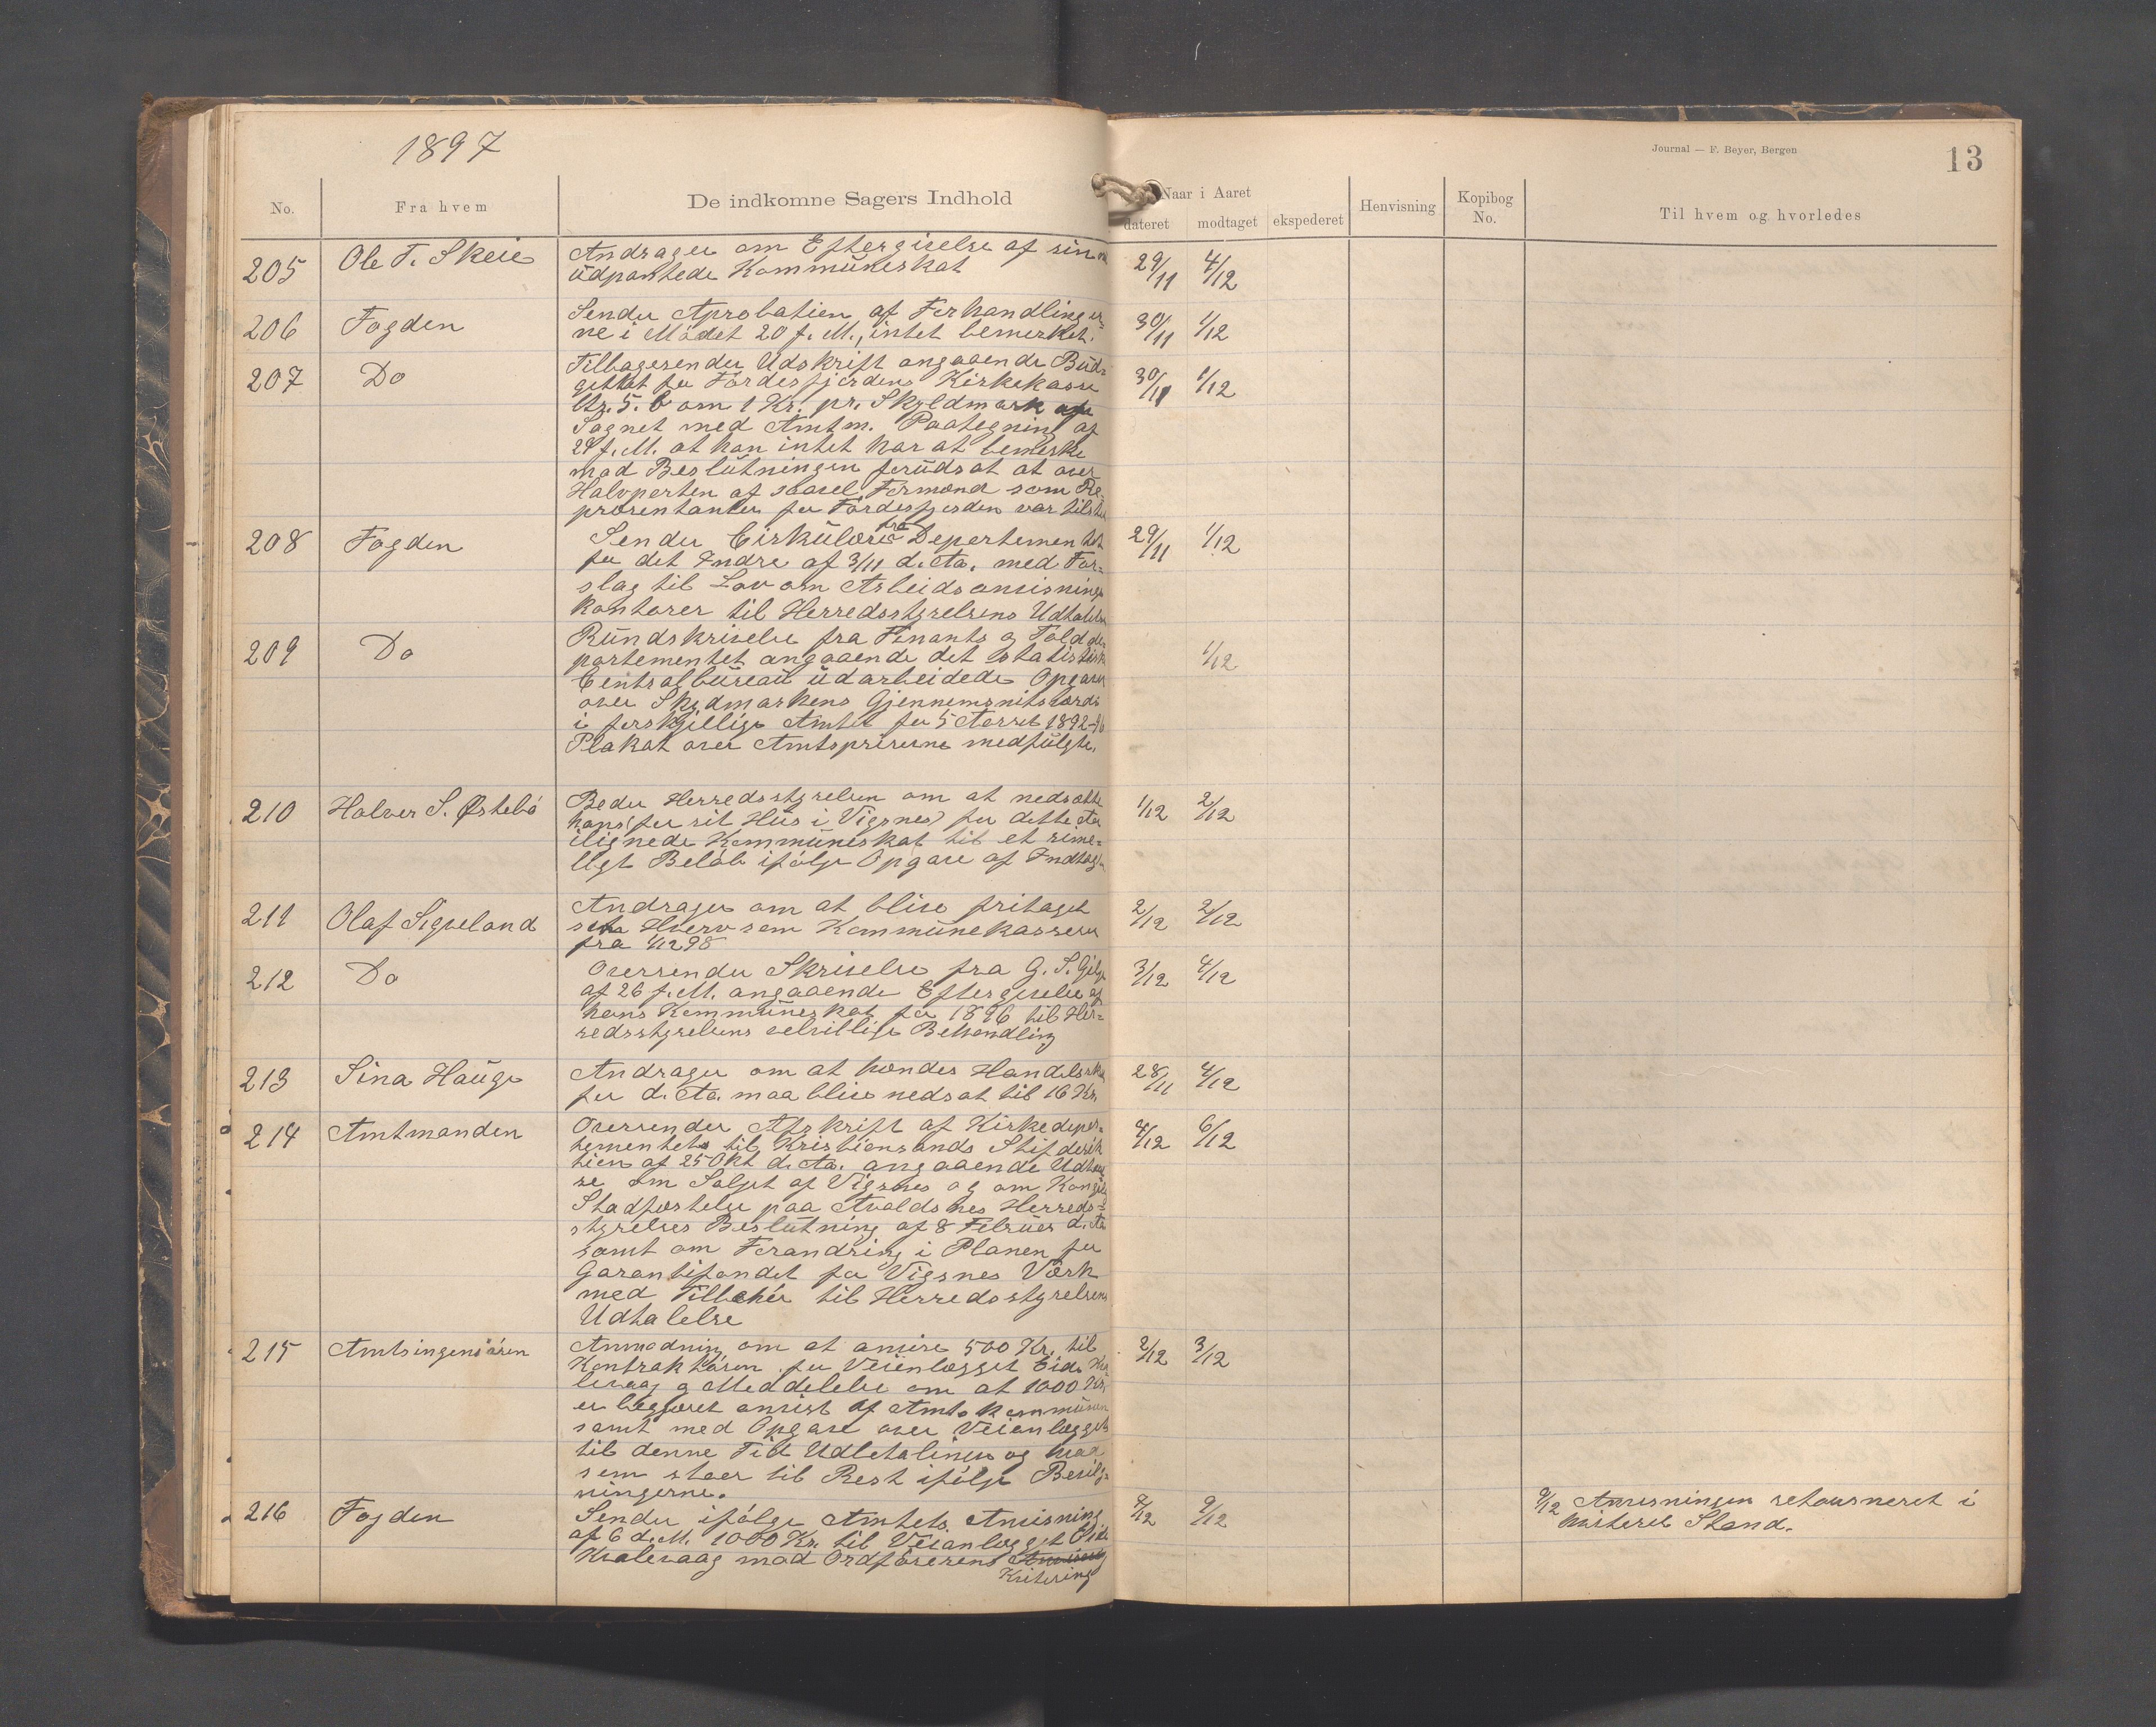 1897
Journal — F. Beyer, Bergen
13
No.
Fra hvem
De indkomne Sagers Indhold
Naar i Aaret
dateret
modtaget
ekspederet
Henvisning
Kopibog
No.
Til hvem og hvorledes
205 Ole T. Skeie Andrager om Eftergivelse af sin 29/11 4/12
udpantede Kommuneskat
206 Fogden Sender Aprobation af Forhandlinger= 30/11 1/12
ne i Mödet 20 f. M., intet bemerket.
207 Do Tilbagesender Udskrift angaaende Bud= 30/11 1/12
gettet for Fördesfjordens Kirkekasse
om 1 Kr. pr. Skyldmark
Sognet med Amtm. Paategning af
29 f. M. at han intet har at bemerke
mod Beslutningen forudsat at over
Halvparten af saavel Formænd som Re=
præsentanter for Fördesfjorden var tilstede
208 Fogden Sender Cirkulære fra Departementet 29/11 1/12
for det Indre af 3/11 d. Aa. med For=
slag til Lov om Arbeidsanvisnings
kontorer til Herredsstyrelsens Udtalelse
209 Do Rundskrivelse fra Finants og Toldde 1/12
partementet angaaende det statistisk
Centralbureau udarbeidede Opgave
over Skyldmarkens Gjennemsnitsværdi
i forskjellige Amter for 5 Aaret 1892-96
Plakat over Amtspriserne medfulgte.
210 Halvor S. Østebö Beder Herredsstyrelsen om at nedsætte 1/12 2/12
hans (for sit Hus i Vigsnes) for dette Aar
ilignede Kommuneskat til et rime=
ligt Belöb ifölge Opgave af Indtægt
211 Olaf Sigveland Andrager om at blive fritaget 2/12 2/12
Hverv som Kommunekasserer
fra 1/1 98
212 Do Oversender Skrivelse fra G. S. 3/12 4/12
af 26 f. M. angaaende Eftergivelse af
hans Kommuneskat for 1896 til Her=
redsstyrelsens velvillige Behandling
213 Sina Hauge Andrager om at hendes Handelsskat 28/11 4/12
for d. Aa. maa blive nedsat til 16 Kr.
214 Amtmanden Oversender Afskrift af Kirkedepar= 4/12 6/12
tementets til Kristiansands Stiftdirek
tion af 25 Okt d. Aa. angaaende
om Salget af Vigsnes og om Kongelig
Stadfæstelse paa Avaldsnes Herreds=
styrelses Beslutning af 8 Februar d. Aa
samt om Forandring i Planen for
Garantifondet for Vigsnes Værk
med Tilbehör til Herredsstyrelsens
Udtalelse
215 Amtsingeniören Anmodning om at anvise 500 Kr. til 2/12 3/12
Kontraktören for Veianlægget Eide
og Meddelelse om at 1000 Kr.
er begjæret anvist af Amtskommunen
samt med Opgave over Veianlægget
til denne Tid Udbetalinger og hvad
som staar til Rest ifölge Bevilg=
ningerne.
216 Fogden Sender ifölge Amtets Anvisning 7/12 9/12 9/12 Anvisningen retourneret i
af 6 d. M. 1000 Kr. til Veianlægget Eide kviteret Stand.
Kvalevaag mod Ordförerens
Kvitering